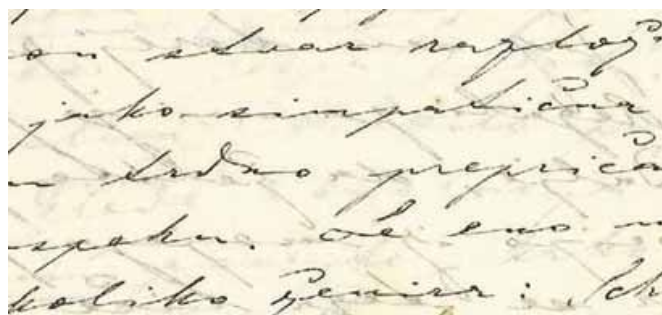 on stvar razlož
jako simpatična
trdno prepriča
spehu. Le eno
koliko ženira: Sch